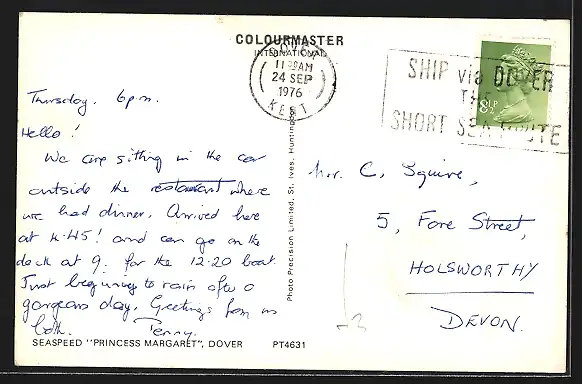 COLOURMASTER
INTERNATIONAL
DOVER
AM
24 SEP
1976
KENT
SHIP via DOVER
THE
SHORT SEA ROUTE
8½P
Thursday. 6p.m.
Hello!
We are sitting in the car
outside the restaurant where
we had dinner. Arrived here
at 4.45! and can go on the
dock at 9. for the 12.20 boat.
Just beginning to rain after a
gorgeous day. Greetings from us
both. Penny.
Mr. C. Squire,
5, Fore Street,
HOLSWORTHY
DEVON.
Photo Precision Limited, St. Ives, Huntingdon
SEASPEED "PRINCESS MARGARET", DOVER PT4631